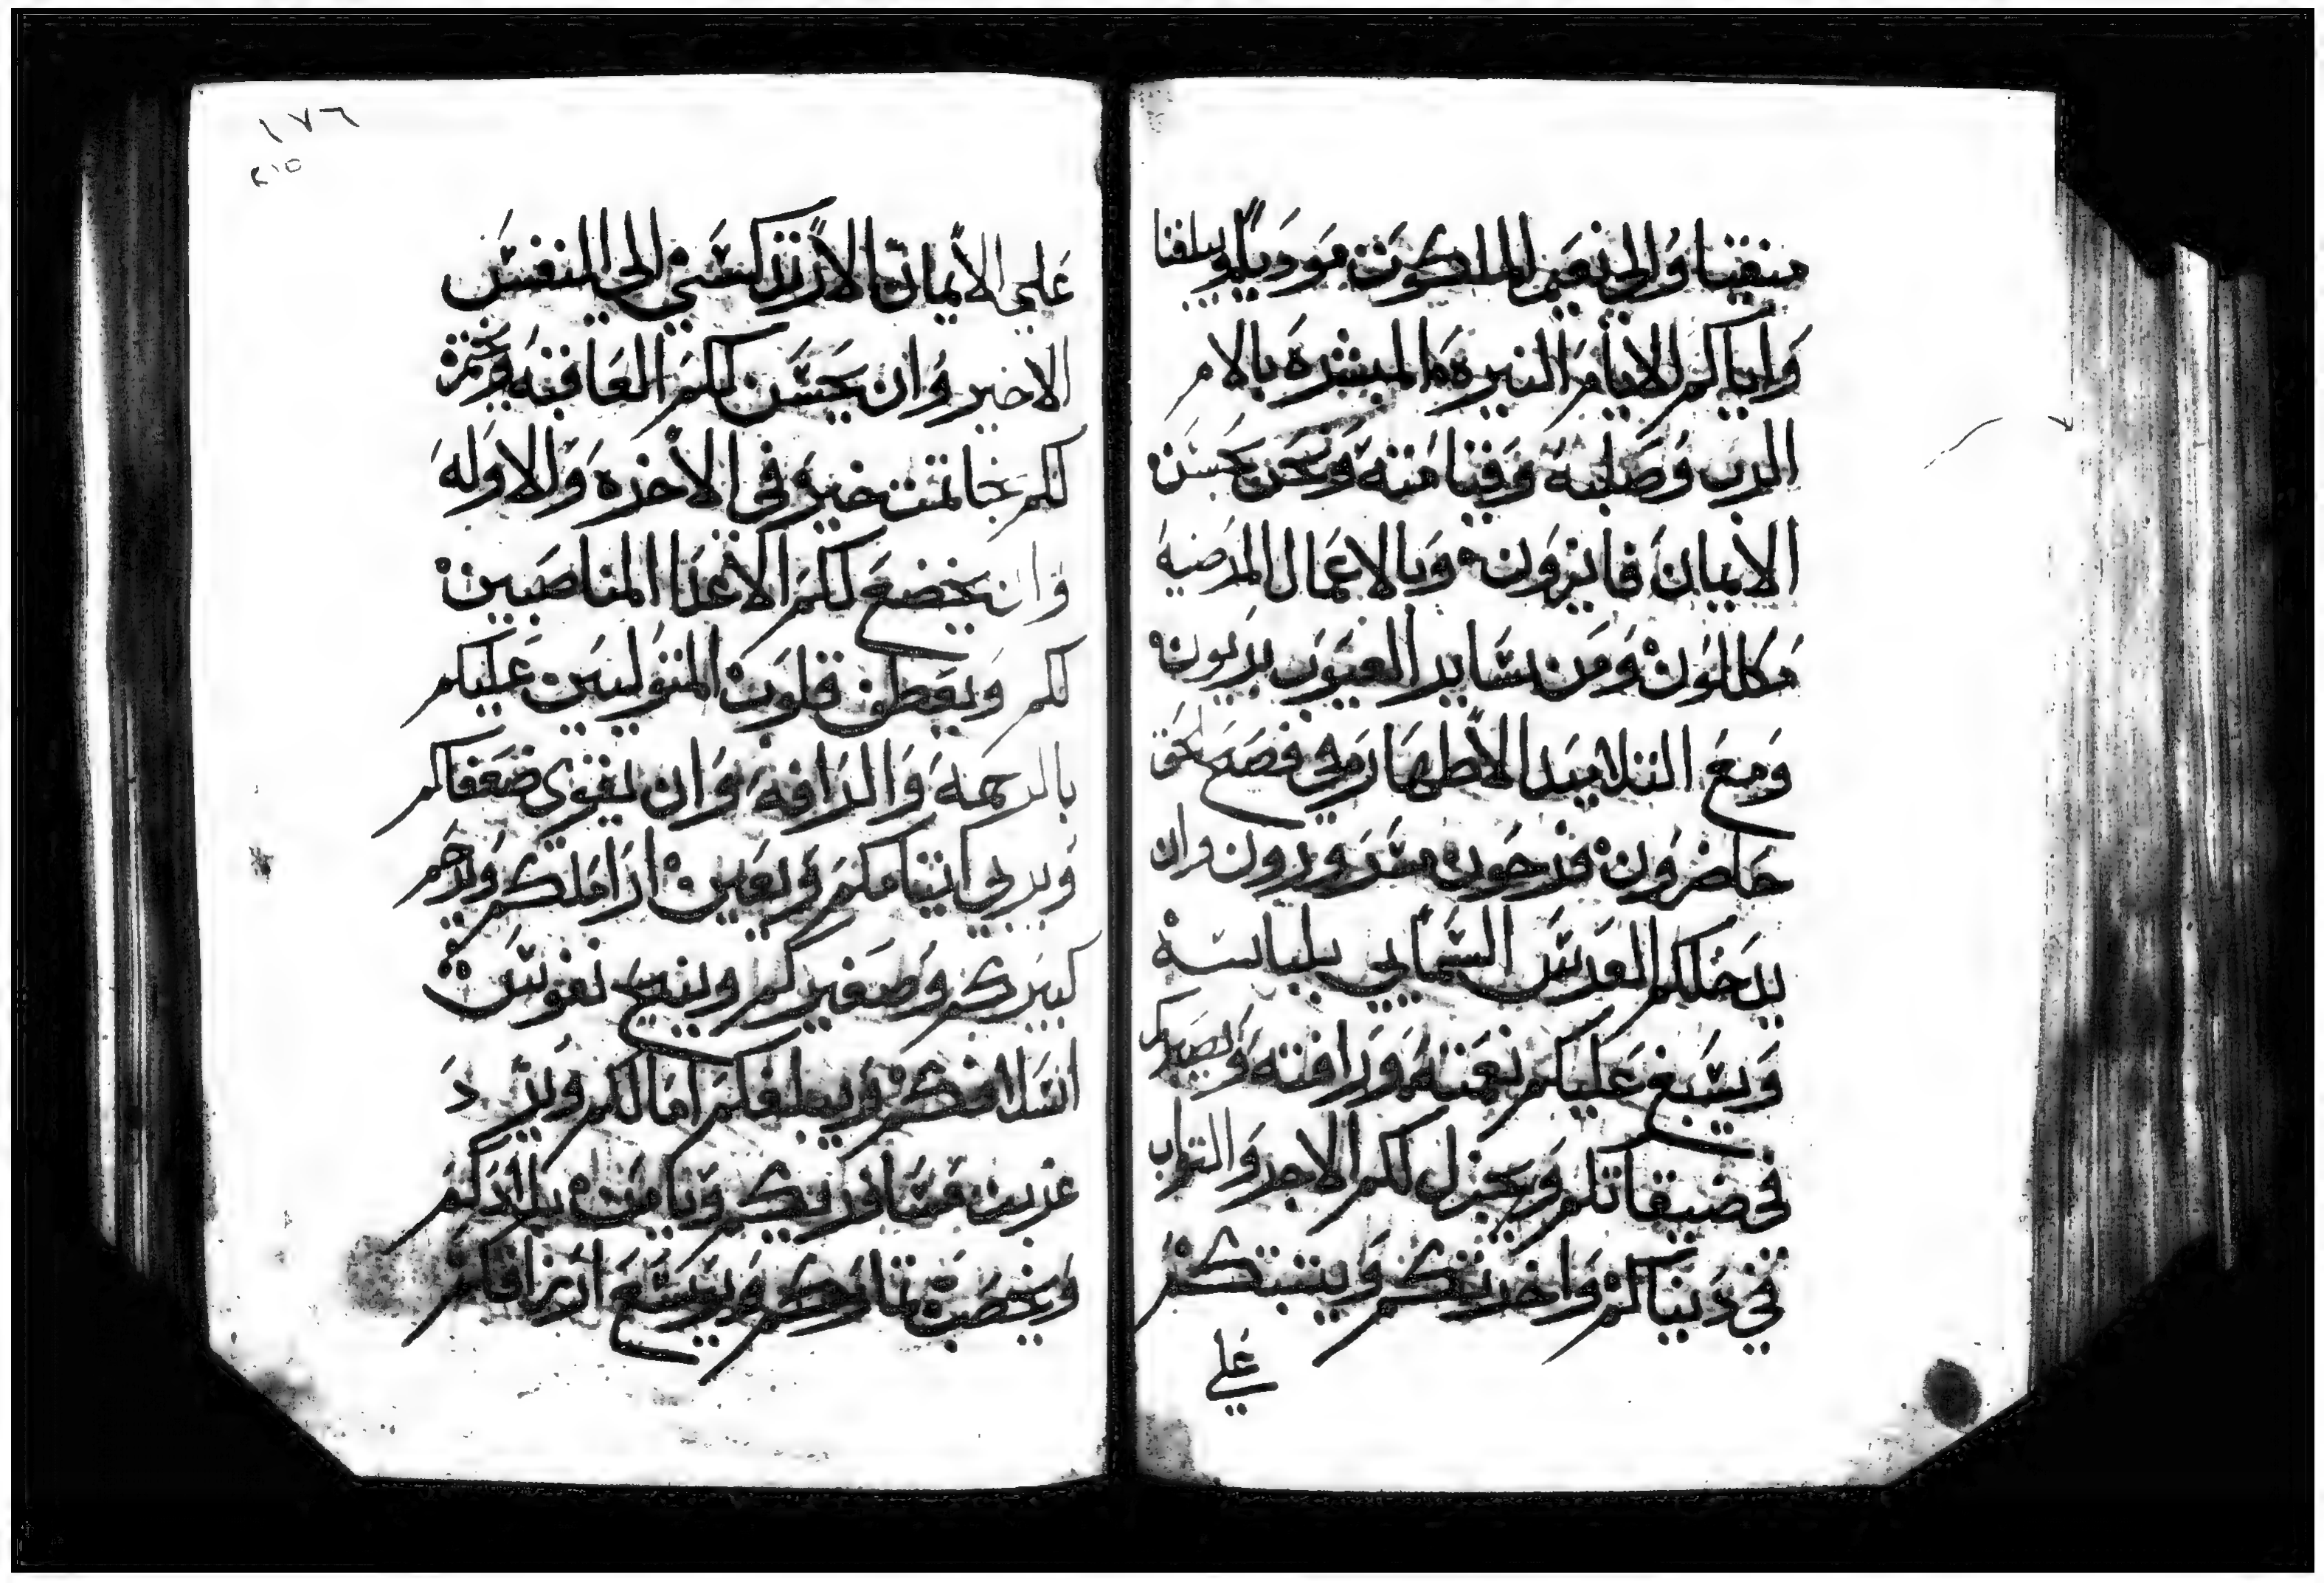 منقيا والي نعيم الملكوت موديا ويبلغنا
واياكم الايام النيره المبشره بالام
الرب وصلبه وقيامته ونحن بحسن
الايمان فايزون وبالاعمال المرضيه
مكللون ومن ساير العيوب بريون
ومع التلاميد الاطهار في فصح الحق
حاضرون فرحون مسرورون وان
يدخلكم العرس السمايي بلباسه
ويسبغ عليكم نعمته ورافته وينصركم
في ضيقاتكم ويجزل لكم الاجر والتواب
في دنياكم واخرتكم ويتبتكم
علي
١٧٦
٢١٥
علي الايمان الارتدكسي الي النفس
الاخير وان يحسن لكم العاقبه ويختم
لكم بخاتمت خير في الاخره والاوله
وان يخضع لكم الاعدا المناصبين
لكم ويعطف قلوب المتوليين عليكم
بالرحمه والرافه وان يقوي ضعفاكم
ويربي ايتامكم ويعين اراملكم ويرحم
كبيركم وصغيركم وينيح نفوس
اسلافكم ويبلغكم امالكم ويرد
غربت مسافريكم ويامن بلادكم
ويخصب تماركم ويوسع ارزاقكم